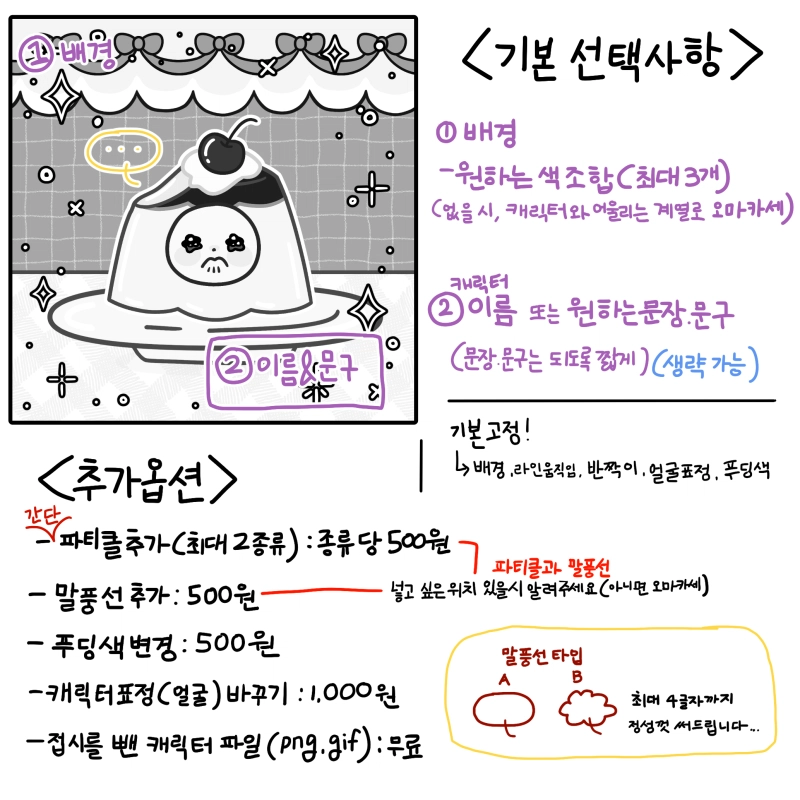 ① 배경
...
② 이름&문구
<기본 선택사항>
① 배경
-원하는 색 조합(최대 3개)
(없을 시, 캐릭터와 어울리는 계열로 오마카세)
캐릭터
② 이름 또는 원하는 문장.문구
(문장.문구는 되도록 짧게) (생략 가능)
기본고정!
↳ 배경, 라인움직임, 반짝이, 얼굴표정, 푸딩색
<추가옵션>
간단
- 파티클 추가(최대 2종류) : 종류 당 500원
파티클과 말풍선
넣고 싶은 위치 있을시 알려주세요 (아니면 오마카세)
- 말풍선 추가 : 500원
- 푸딩색 변경 : 500원
- 캐릭터 표정(얼굴) 바꾸기 : 1,000원
- 접시를 뺀 캐릭터 파일 (png, gif) : 무료
말풍선 타입
A B
최대 4글자까지
정성껏 써드립니다...